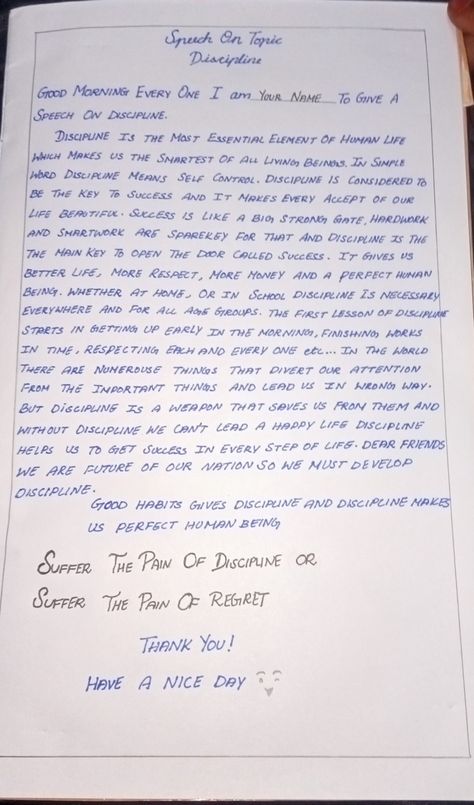 Speech On Topic
Discipline
GOOD MORNING EVERY ONE I am YOUR NAME TO GIVE A
SPEECH ON DISCIPLINE.
DISCIPLINE IS THE MOST ESSENTIAL ELEMENT OF HUMAN LIFE
WHICH MAKES US THE SMARTEST OF ALL LIVING BEINGS. IN SIMPLE
WORD DISCIPLINE MEANS SELF CONTROL. DISCIPLINE IS CONSIDERED TO
BE THE KEY TO SUCCESS AND IT MAKES EVERY ACCEPT OF OUR
LIFE BEAOTIFUL. SUCCESS IS LIKE A BIG STRONG GATE, HARDWORK
AND SMARTWORK ARE SPAREKEY FOR THAT AND DISCIPLINE IS THE
THE MAIN KEY TO OPEN THE DOOR CALLED SUCCESS. IT GIVES US
BETTER LIFE, MORE RESPECT, MORE MONEY AND A PERFECT HUMAN
BEING. WHETHER AT HOME, OR IN SCHOOL DISCIPLINE IS NECESSARY
EVERYWHERE AND FOR ALL AGE GROUPS. THE FIRST LESSON OF DISCIPLINE
STARTS IN GETTING UP EARLY IN THE MORNING, FINISHING WORKS
IN TIME, RESPECTING EACH AND EVERY ONE etc... IN THE WORLD
THERE ARE NUMEROUSE THINGS THAT DIVERT OUR ATTENTION
FROM THE IMPORTANT THINGS AND LEAD US IN WRONG WAY.
BUT DISCIPLINE IS A WEAPON THAT SAVES US FROM THEM AND
WITHOUT DISCIPLINE WE CAN'T LEAD A HAPPY LIFE DISCIPLINE
HELPS US TO GET SUCCESS IN EVERY STEP OF LIFE. DEAR FRIENDS
WE ARE FUTURE OF OUR NATION SO WE MUST DEVELOP
DISCIPLINE.
GOOD HABITS GIVES DISCIPLINE AND DISCIPLINE MAKES
US PERFECT HUMAN BEING
SUFFER THE PAIN OF DISCIPLINE OR
SUFFER THE PAIN OF REGRET
THANK YOU!
HAVE A NICE DAY